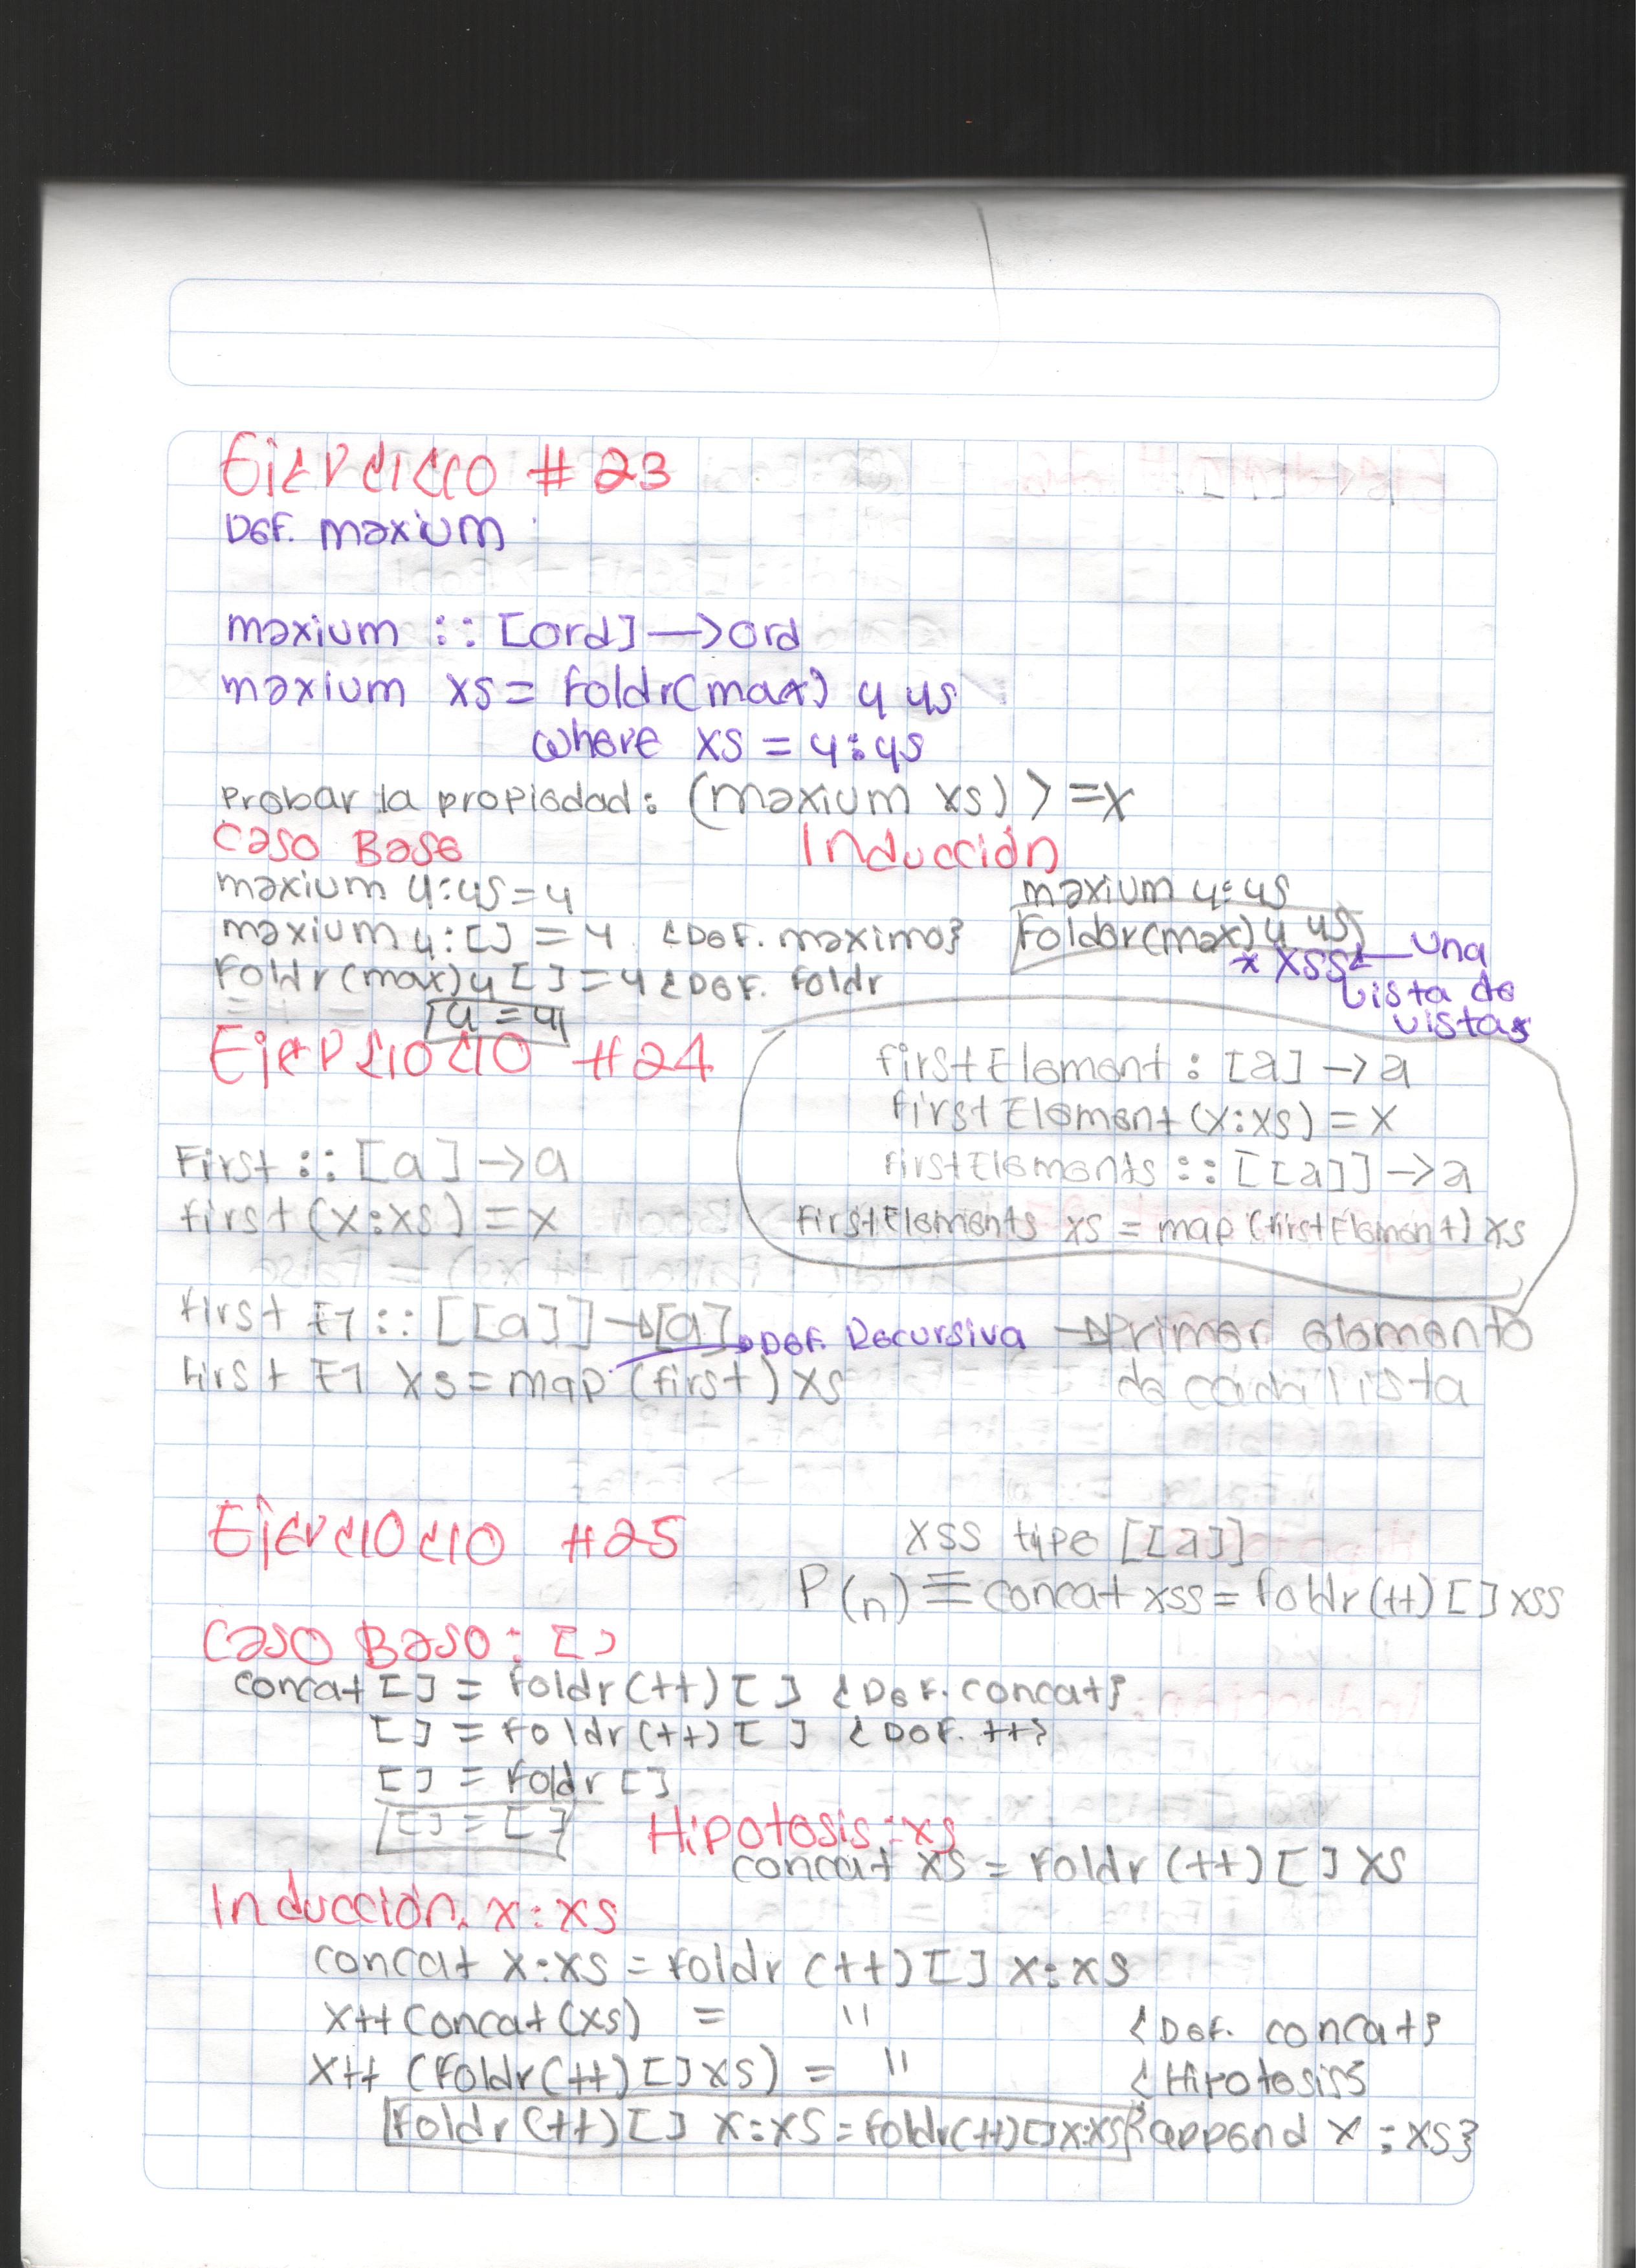 Ejercicio # 23
Def. maxium :
maxium :: [ord] —> ord
maxium xs = foldr(max) y ys
where xs = y:ys
Probar la propiedad: (maxium xs) >= x
Caso Base
maxium y:ys = y
maxium y:[] = y {Def. maximo}
Foldr (max) y [] = y {Def. foldr
y = y
Inducción
maxium y:ys
Foldor(max) y ys
* xss <— una
lista de
listas
Ejercicio #24
First :: [a] -> a
first (x:xs) = x
first El :: [[a]] -> [a]
first El xs = map (first) xs
Def. Recursiva
firstElement : [a] -> a
firstElement (x:xs) = x
firstElements :: [[a]] -> a
firstElements xs = map (firstElement) xs
-> Primer elemento
de cada lista
Ejercicio #25
xss type [[a]]
P(n) ≡ concat xss = foldr (++) [] xss
Caso Base: []
concat [] = foldr (++) [] {Def. concat}
[] = foldr (++) [] {Def. ++}
[] = foldr []
[] = []
Hipotesis : xs
concat xs = foldr (++) [] xs
Inducción. x:xs
concat x:xs = foldr (++) [] x:xs
x++ concat (xs) = " {Def. concat}
x++ (foldr (++) [] xs) = " {Hipotesis}
foldr (++) [] x:xs = foldr (++) [] x:xs {append x:xs}